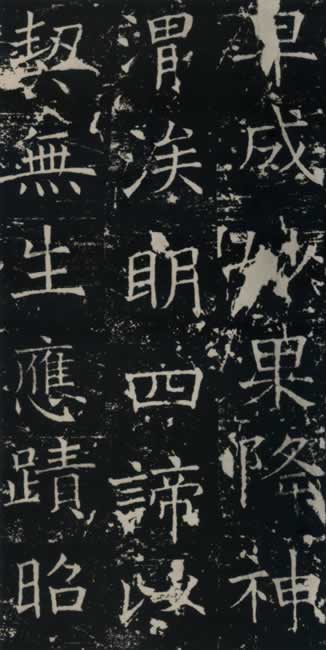 早成妙果降神
渭涘眀四諦以
契無生應蹟昭